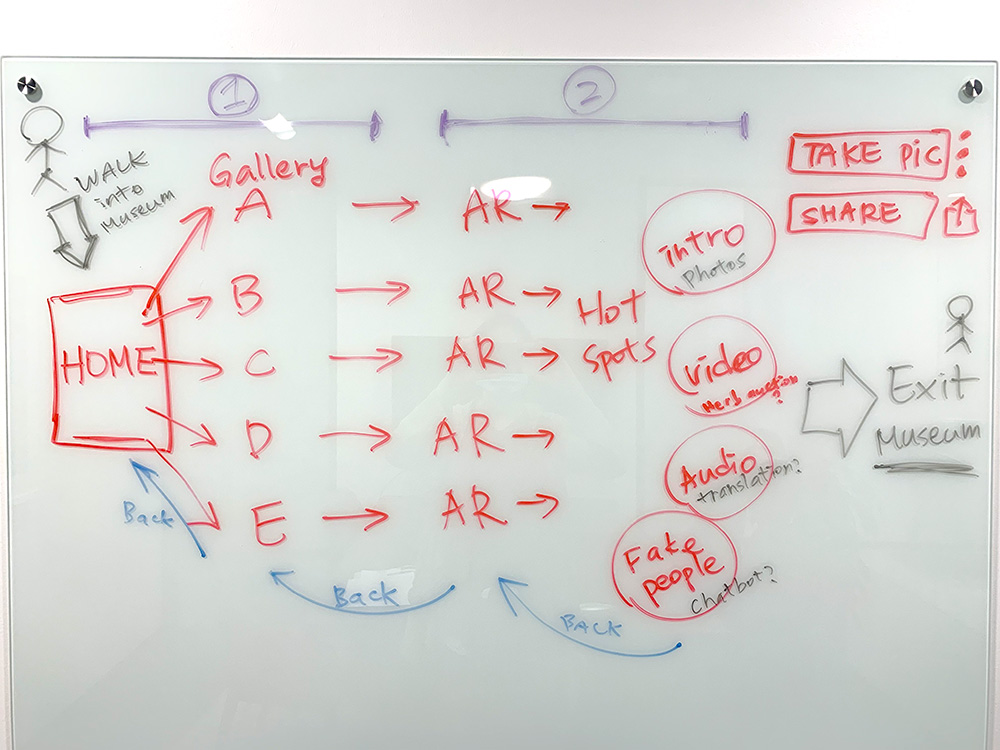 1
2
WALK
into
Museum
Gallery
TAKE PiC
SHARE
A
AR
intro
Photos
B
AR
Hot
Spots
HOME
C
AR
video
Exit
Museum
D
AR
Audio
translation?
Back
E
AR
Fake
people
chatbot?
Back
BACK